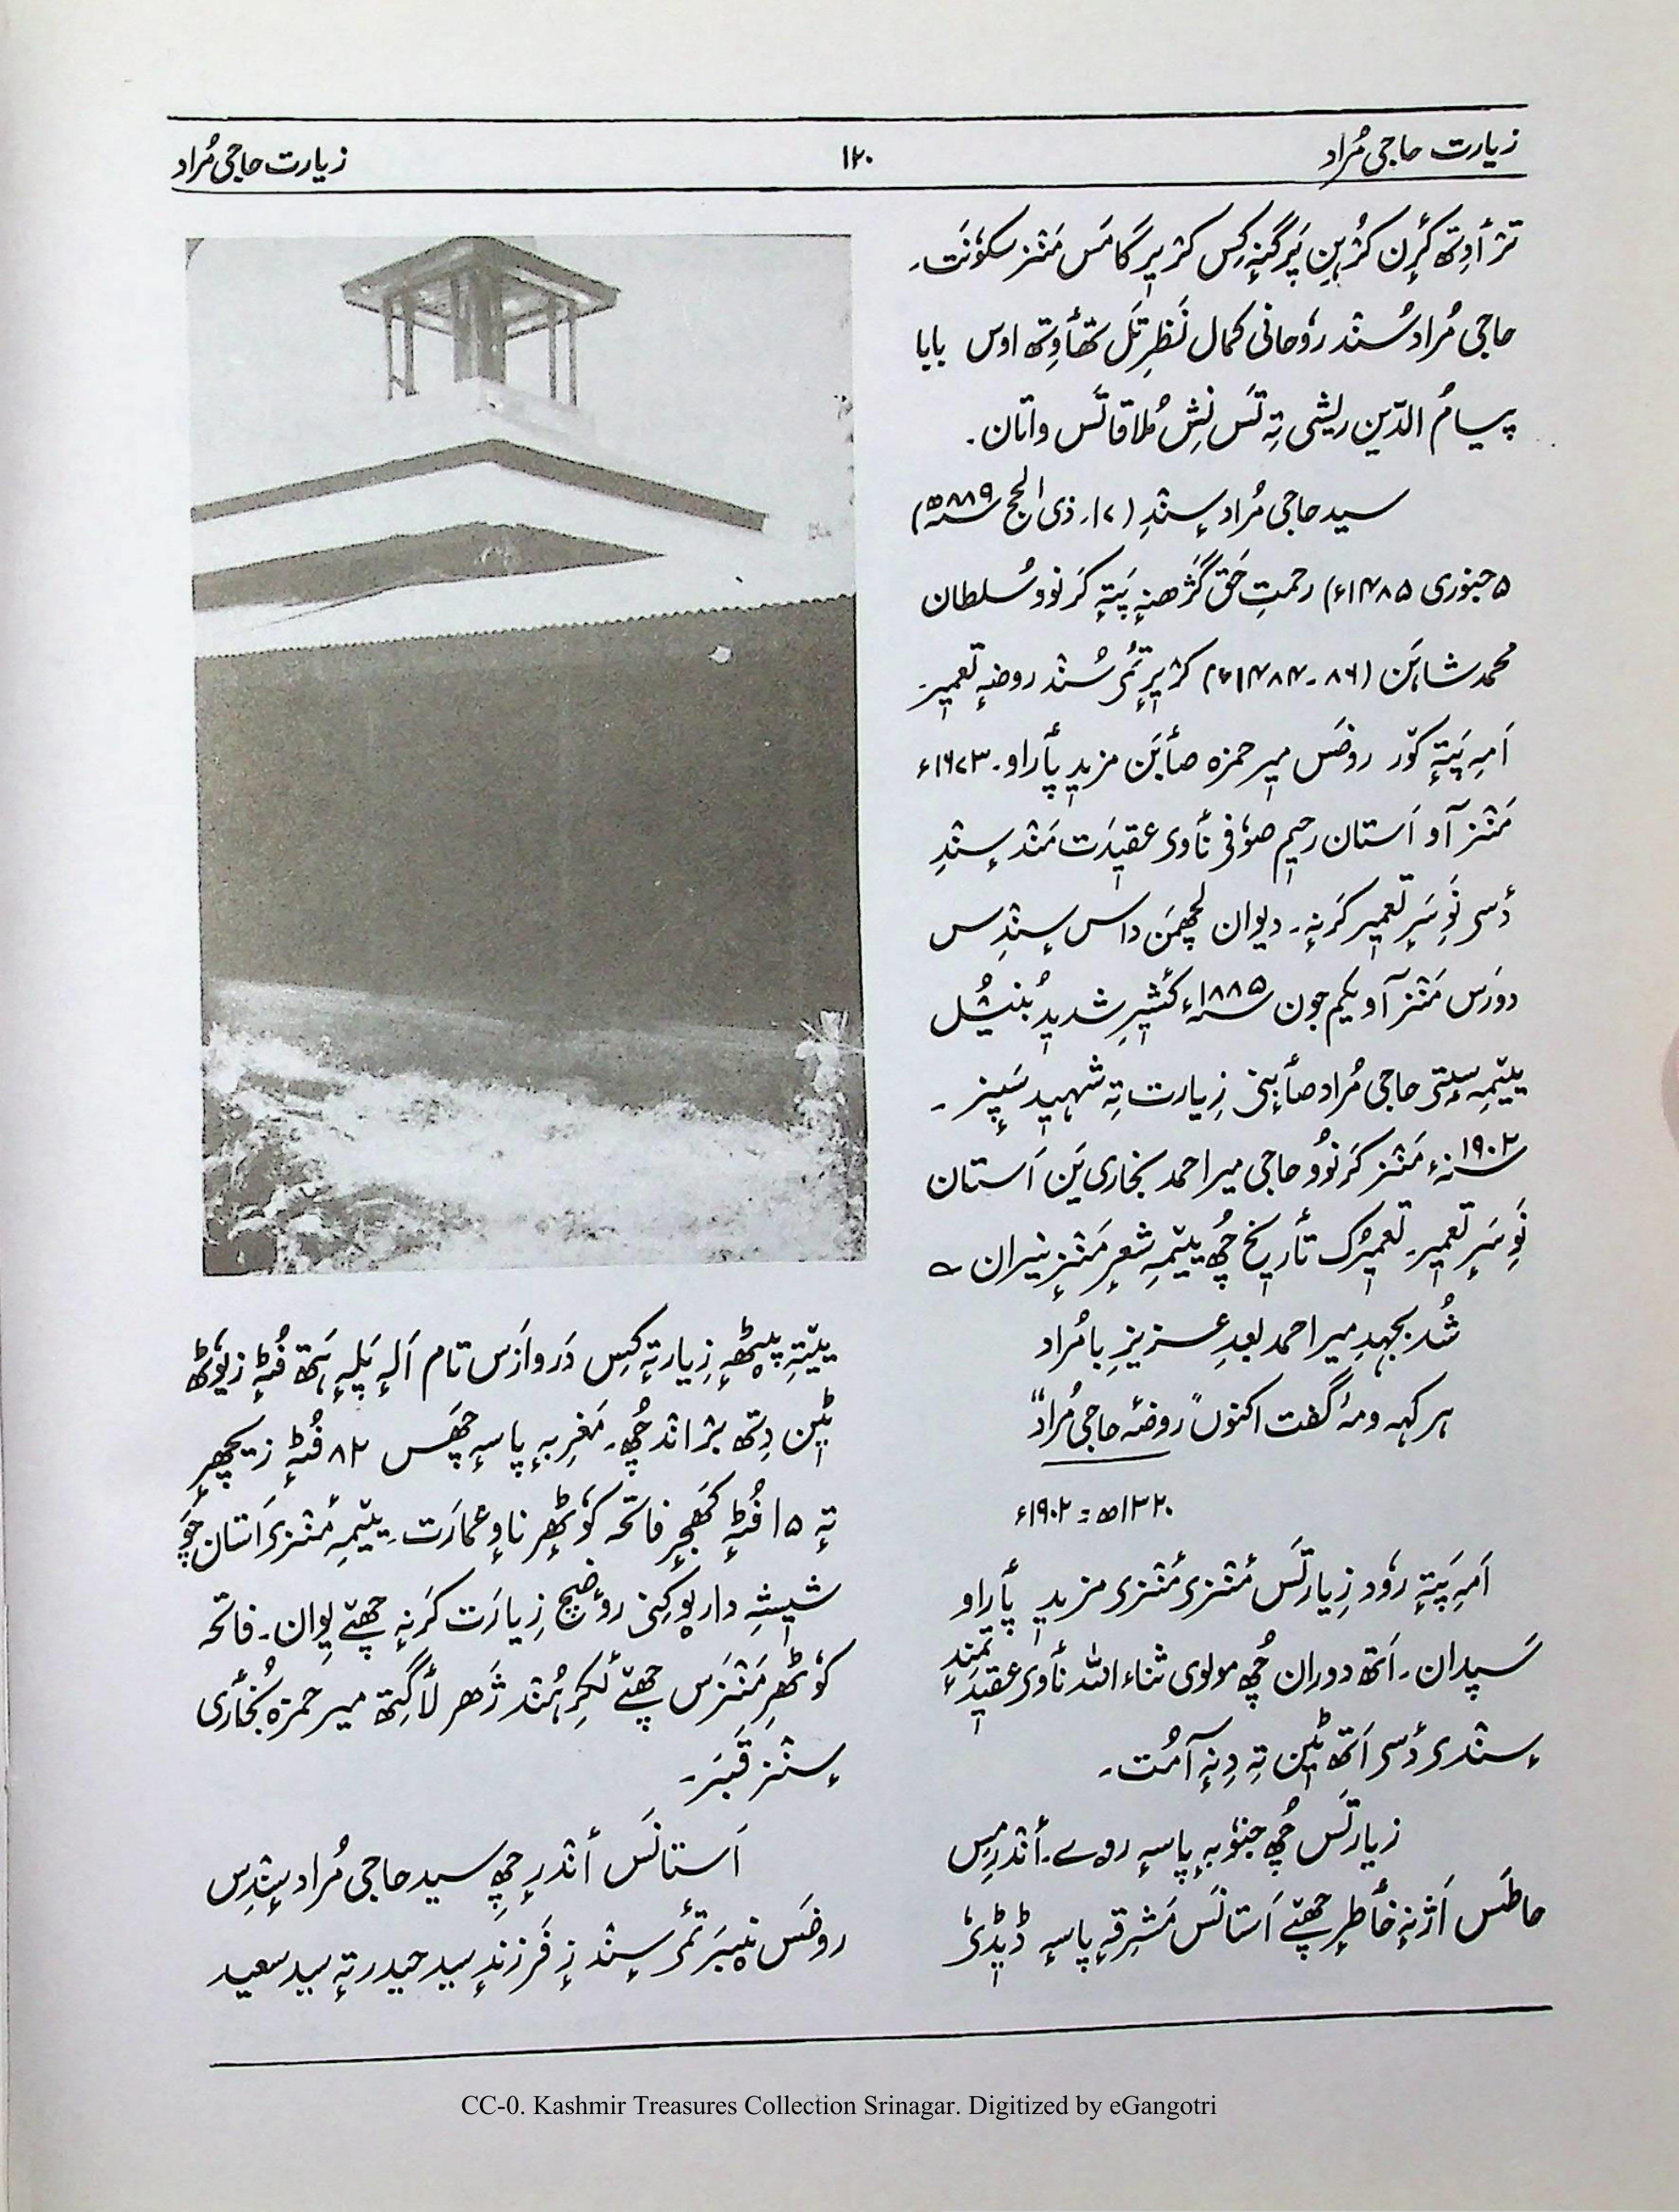 زیارت حاجی مُراد
۱۲۰
زیارت حاجی مُراد
ترٛأوِتھ کٔرِن کرُٛہِن پَرگنہٕ کِس کرٛیرِ گامَس مَنٛز سکوٗنَت۔
حاجی مُراد سُنٛد روٗحانی کمال نَظرِ تَل تھٲوِتھ اوس بابا
پیامُ الدّین ریشی تِہ تَس نِش مُلاقاتَس واتان۔
سید حاجی مُراد سٕنٛدِ (۱۷۔ ذی الحج ۸۸۹ھ
۵ جنوری ۱۴۸۵ء) رحمتِ حَق گژھنہٕ پَتہٕ کَرنوو سُلطان
محمد شاہَن (۸۶۔۱۴۸۴ء) کرٛیرِ تٔمی سُنٛد روضہٕ تعمیر۔
اَمہِ پَتہٕ کوٚر روضَس میر حمزہ صٲبَن مزید پٲراو۔ ۱۶۷۳ء
مَنٛز آو اَستان رحیم صوٗفی نٲوی عقیدَت مَنٛد سٕنٛدِ
دٔسی نَوِ سَرِ تعمیر کَرنہٕ۔ دیوان لچھمَن داس سٕنٛدِس
دورَس مَنٛز آو یکم جون ۱۸۸۵ء کٔشیرِ شدید بُنیُل
ییٚمہِ سٕتی حاجی مُراد صٲبنی زِیارت تِہ شہید سَپٕز۔
۱۹۰۲ء مَنٛز کَرنوٗو حاجی میر احمد بخاری یَن اَستان
نَوِ سَرِ تعمیر۔ تعمیرُک تٲریخ چُھ ییٚمہِ شعرِ مَنٛزٕ نیران ؎
شُد بجہدِ میر احمد بعدِ عزیزِ بامُراد
ہر کہہ و مہ گفت اکنوں "روضۂ حاجی مُراد"
۱۳۲۰ھ = ۱۹۰۲ء
اَمہِ پَتہٕ روٗد زِیارتَس مٔنٛزی مٔنٛزی مزید پٲراو
سَپدان۔ اَتھ دوران چُھ مولوی ثناء اللہ نٲوی عقیدَتمندٕ
سٕنٛدی دٔسی اَتھ ٹین تِہ دِنہٕ آمُت۔
زیارتَس چُھ جنوٗبہٕ پاسہٕ روے۔ أنٛدرِمِس
حاطَس اَژنہٕ خٲطرٕ چھےٚ اَستانَس مَشرِقہٕ پاسہٕ ڈیڈٔی
ییٚتہِ پیٚٹھہٕ زِیارتہٕ کِس دَروازَس تام اَلہٕ پَلہٕ ہَتھ فُٹہٕ زیوٗٹھ
ٹین دِتھ برٛانٛد چُھ۔ مَغرِبہٕ پاسہٕ چَھس ۸۲ فُٹہٕ زیچھرٕ
تہٕ ۱۵ فُٹہٕ کَھجرٕ فاتحہ کوٗٹھرِ ناوٕ عمارَت۔ ییٚمہِ مٔنٛزی اَستان چہِ
شیشہٕ دار پوٗکنی روضٕچ زِیارَت کَرنہٕ چھےٚ یِوان۔ فاتحہ
کوٗٹھرِ مَنٛزَس چھےٚ لٔکرِ ہُنٛد ژَھر لٲگتھ میر حمزہ بُخٲری
سٕنٛز قَبَر۔
اَستانَس أنٛدرٕ چھِ سید حاجی مُراد سٕنٛدِس
روضَس نیٚبَر تٔمی سٕنٛد زٕ فَرزندٕ سید حیدر تہٕ سید سعید
CC-0. Kashmir Treasures Collection Srinagar. Digitized by eGangotri